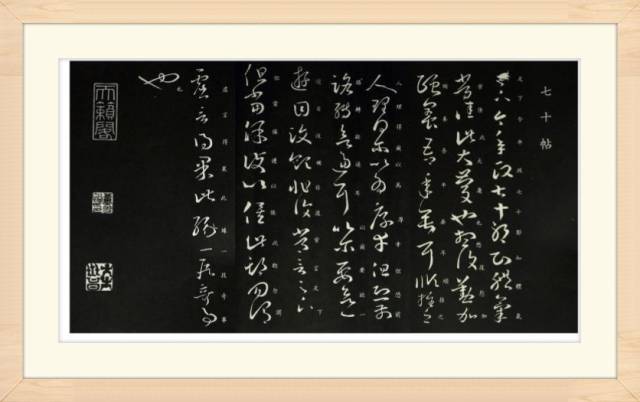 七十帖
足下今年政七十耶知體氣
常佳此大慶也想復懃加
頤養吾年垂耳順推之
人理得爾以為厚幸但恐前
路轉欲逼耳以爾要欲一
遊目汶領非復常言足下
但當保護以俟此期勿謂
虛言得果此緣一段奇事
也
天籟閣